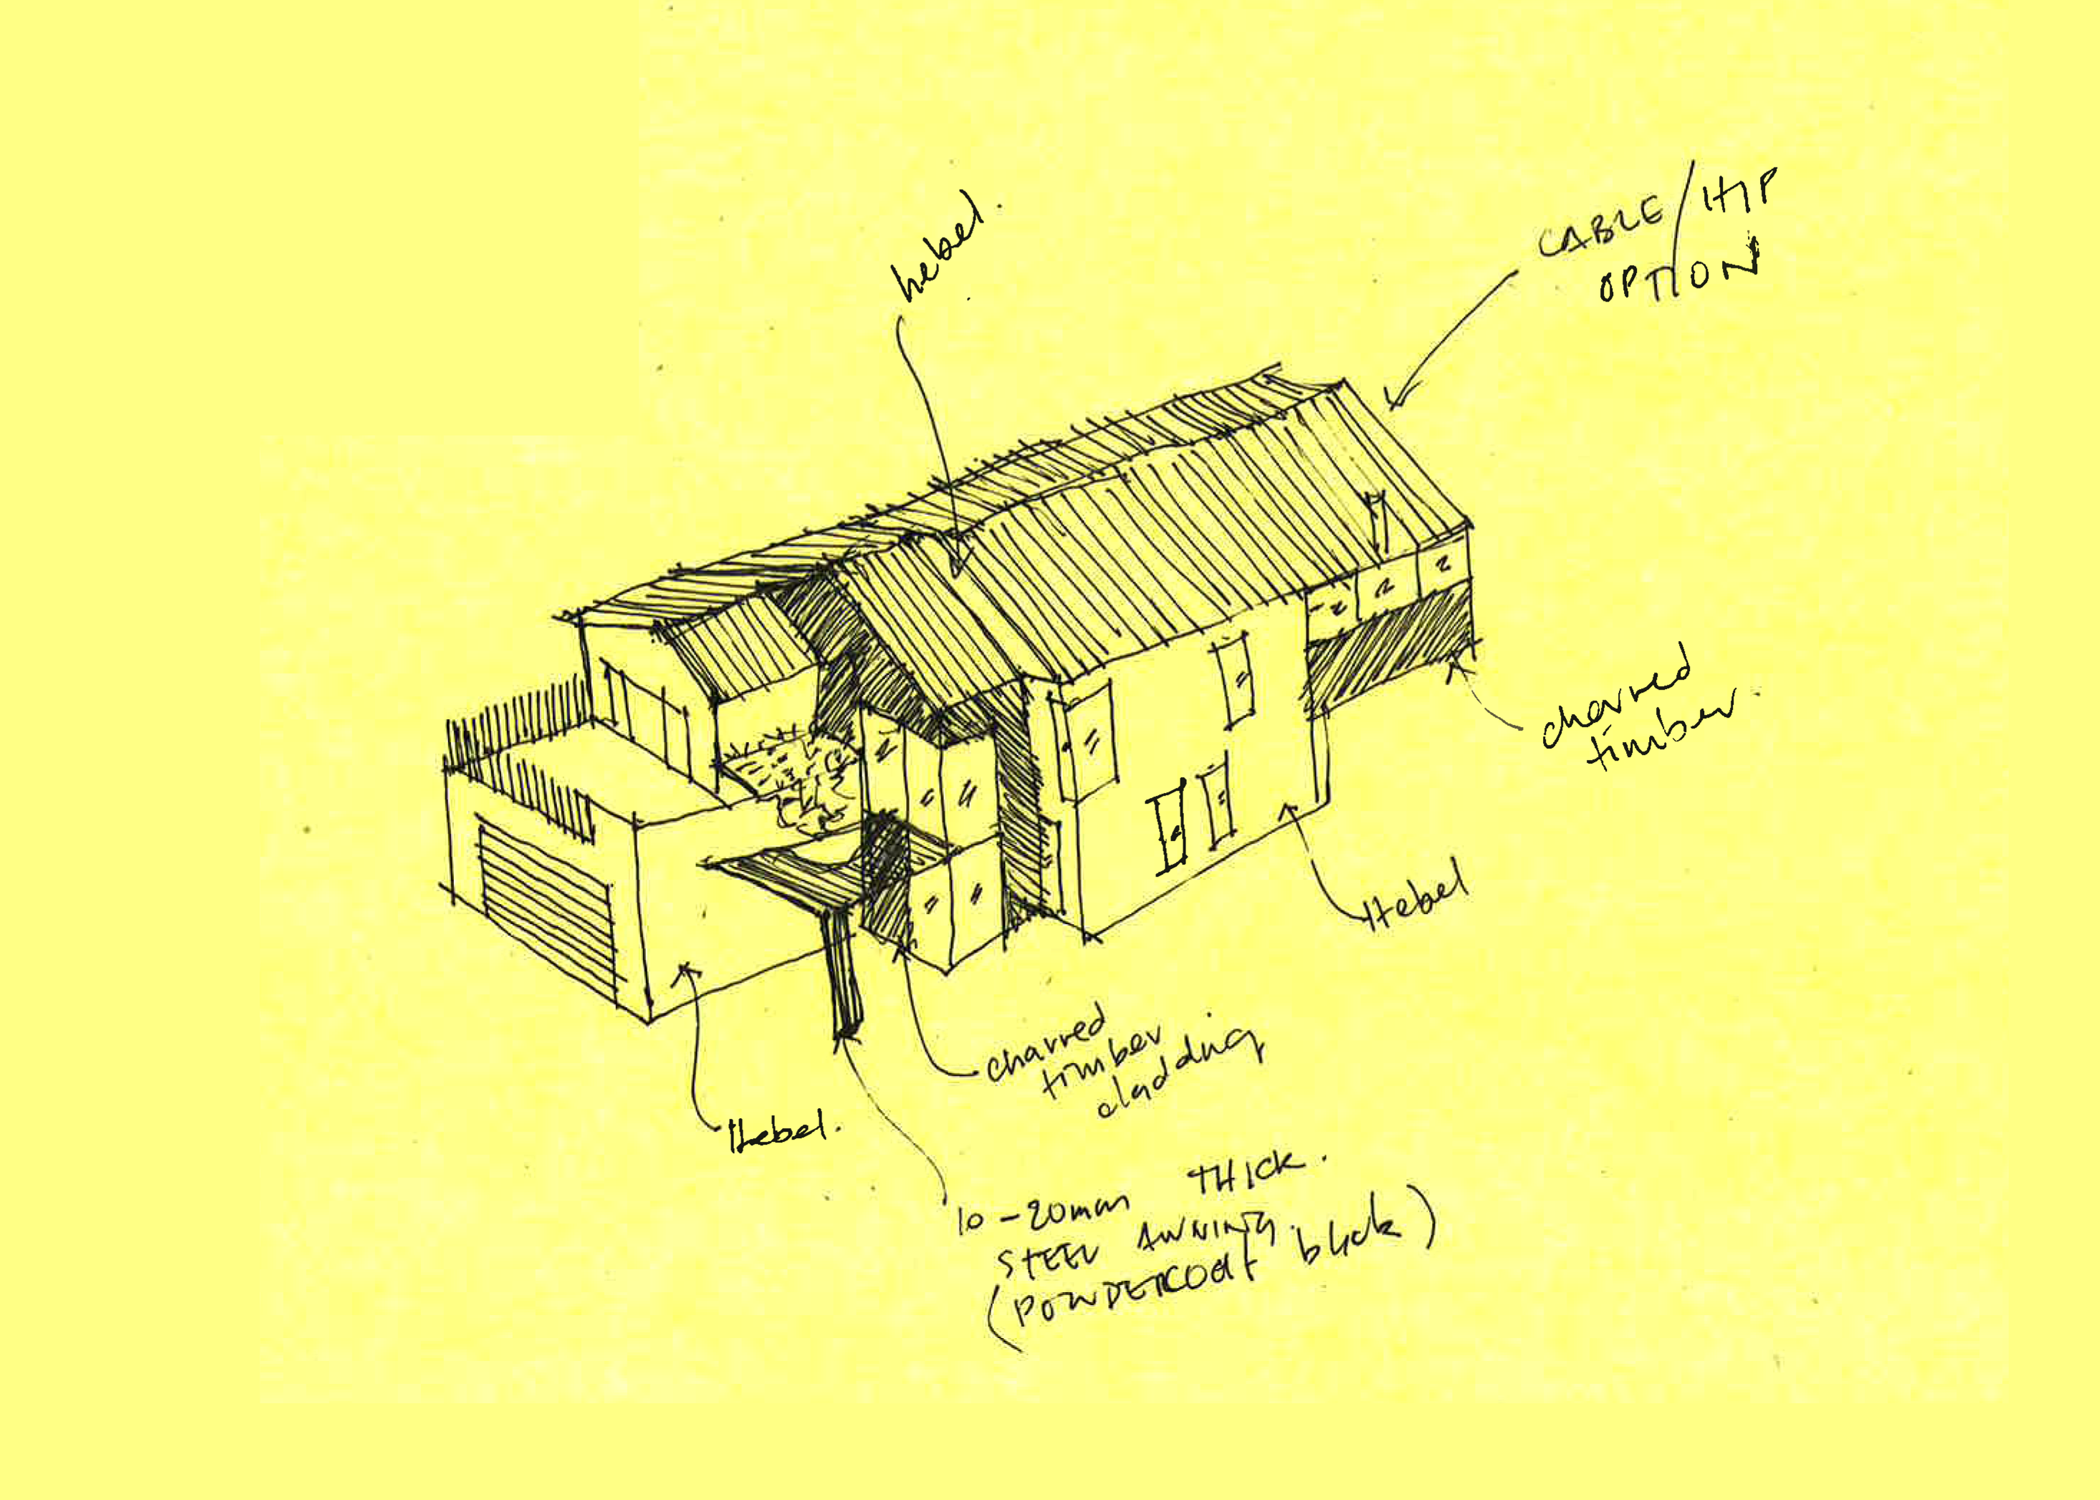 hebel.
CABLE/HIP
OPTION
charred
timber.
Hebel
charred
timber
cladding
Hebel.
10-20mm THICK.
STEEL AWNING.
(POWDERCOAT black)